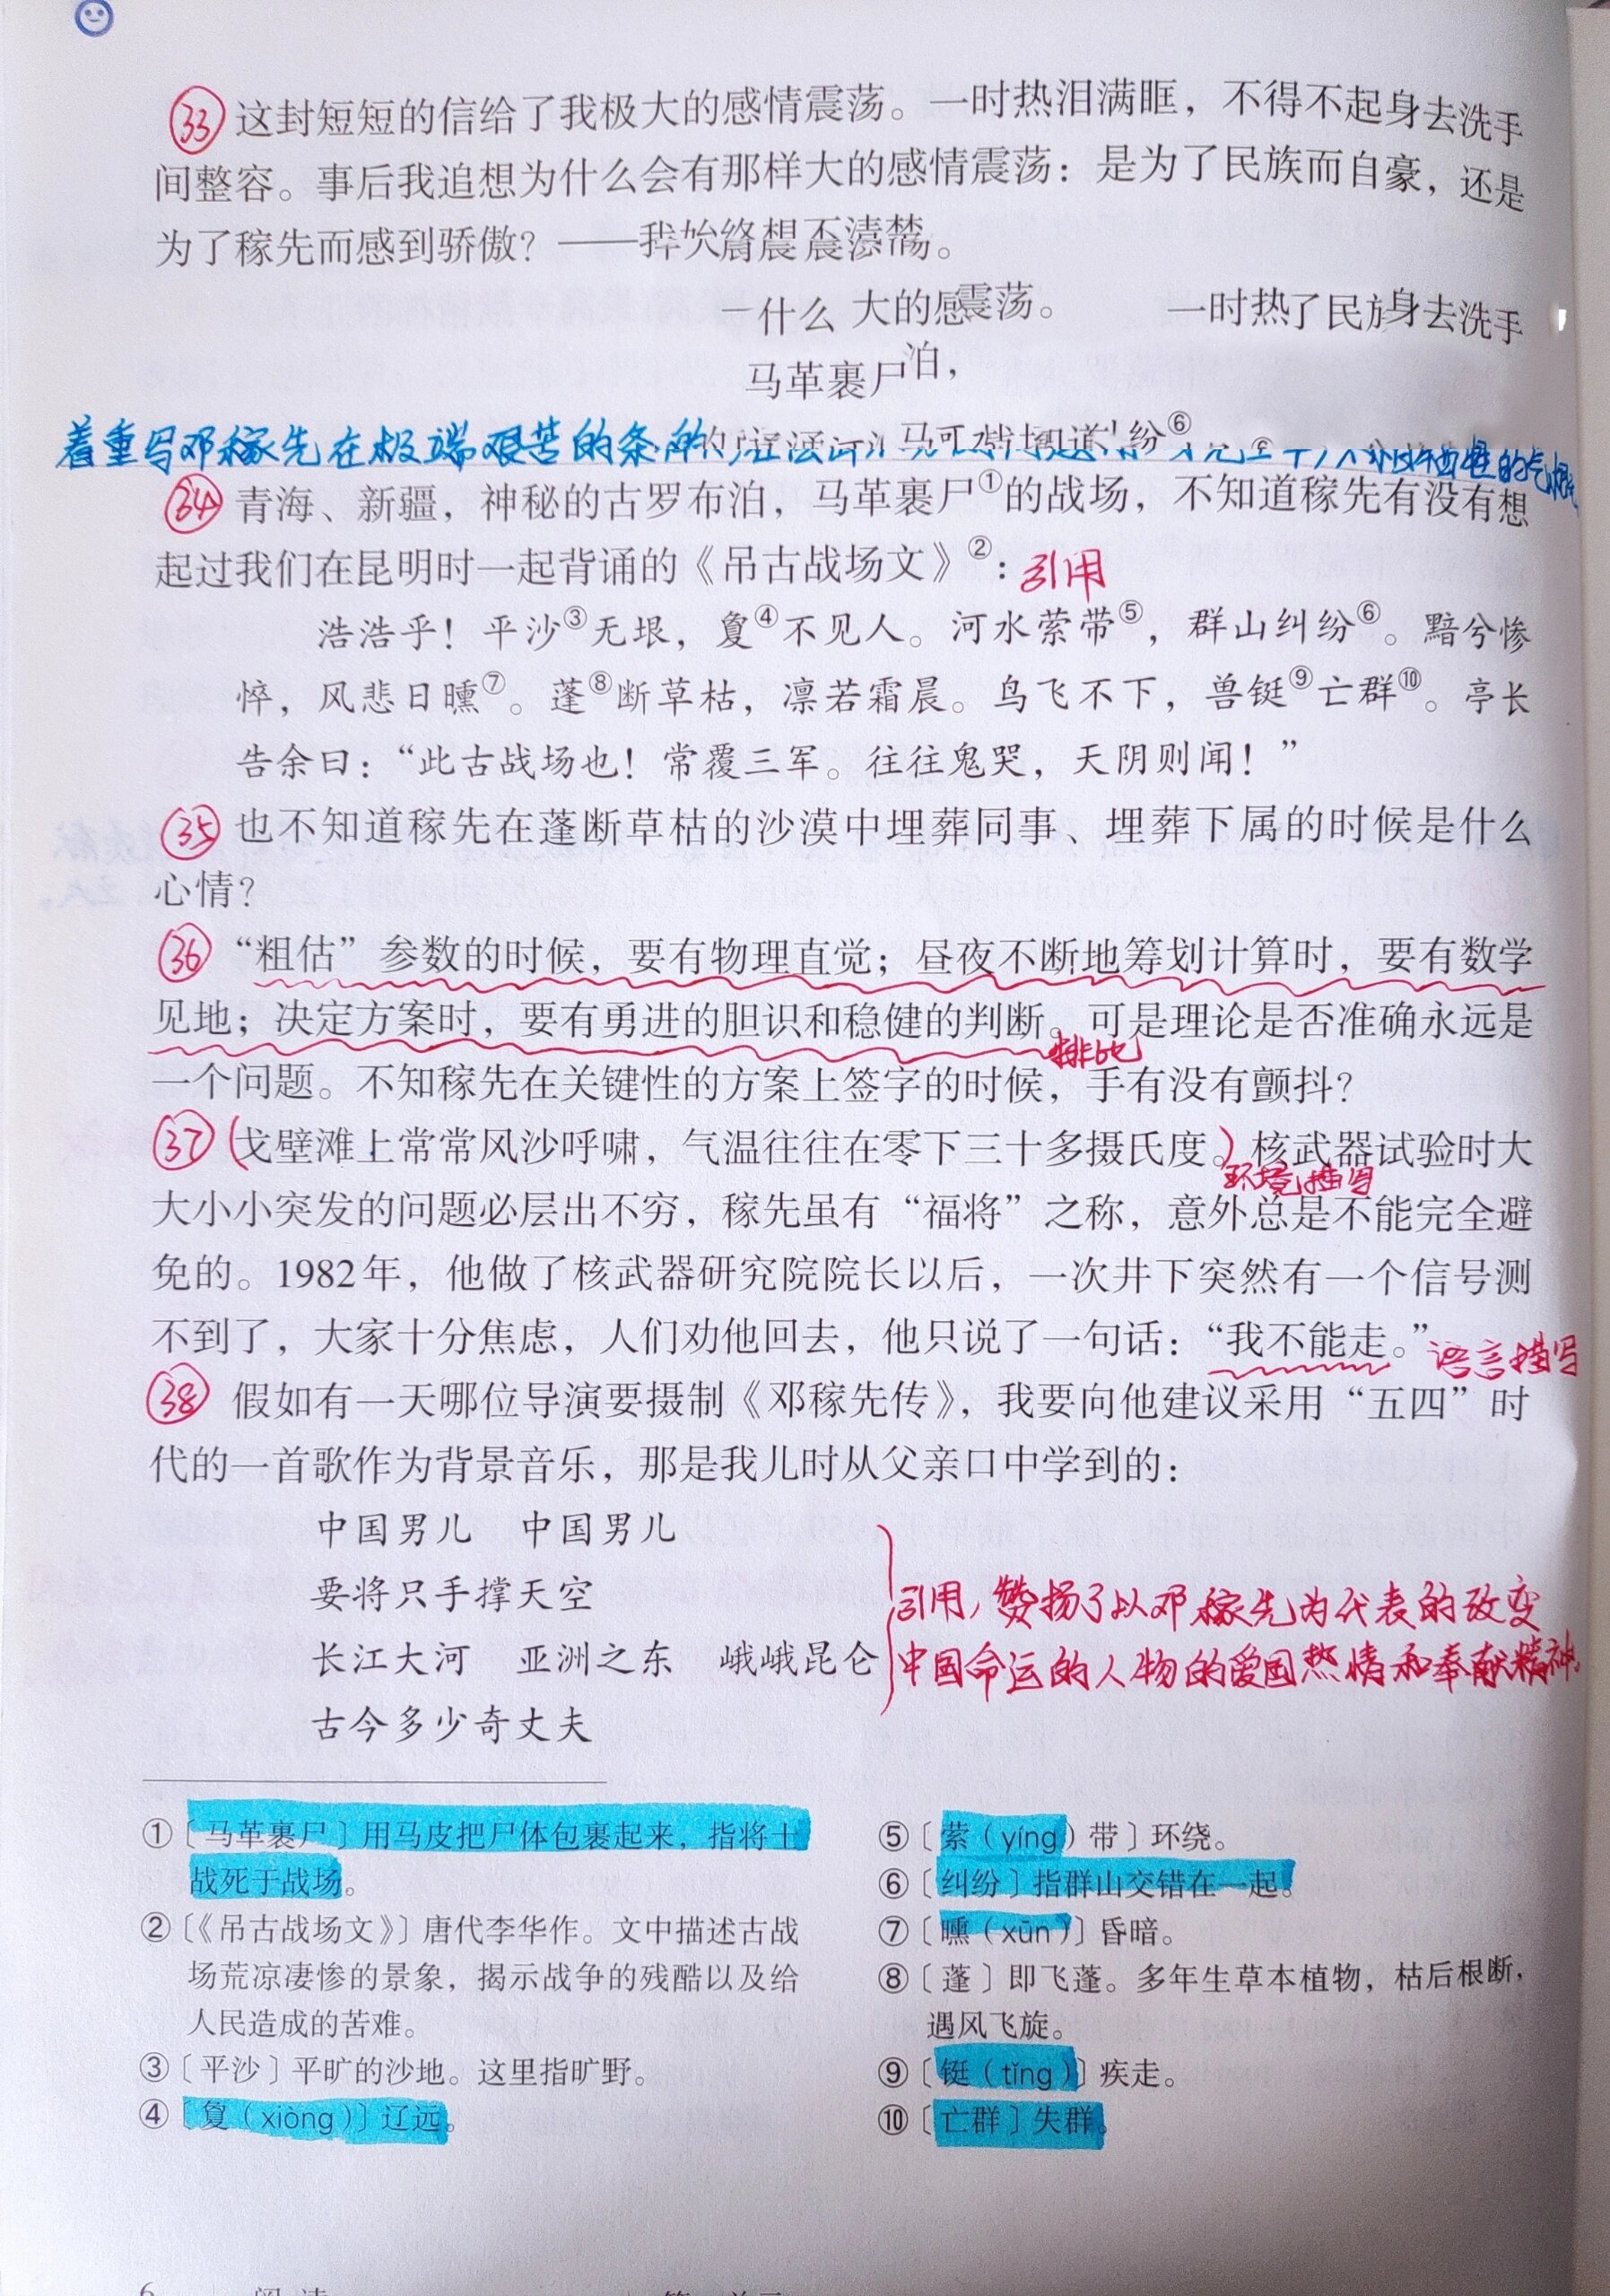 ㉝ 这封短短的信给了我极大的感情震荡。一时热泪满眶，不得不起身去洗手
间整容。事后我追想为什么会有那样大的感情震荡：是为了民族而自豪，还是
为了稼先而感到骄傲？——
什么 大的感震荡。 一时热了民 身去洗手
马革裹尸 泊，
纷⑥
着重写邓稼先在极端艰苦的条
㉞ 青海、新疆，神秘的古罗布泊，马革裹尸①的战场，不知道稼先有没有想
起过我们在昆明时一起背诵的《吊古战场文》②： 引用
浩浩乎！平沙③无垠，敻④不见人。河水萦带⑤，群山纠纷⑥。黯兮惨
悴，风悲日曛⑦。蓬⑧断草枯，凛若霜晨。鸟飞不下，兽铤⑨亡群⑩。亭长
告余曰：“此古战场也！常覆三军。往往鬼哭，天阴则闻！”
㉟ 也不知道稼先在蓬断草枯的沙漠中埋葬同事、埋葬下属的时候是什么
心情？
㊱ “粗估”参数的时候，要有物理直觉；昼夜不断地筹划计算时，要有数学
见地；决定方案时，要有勇进的胆识和稳健的判断。可是理论是否准确永远是
排比
一个问题。不知稼先在关键性的方案上签字的时候，手有没有颤抖？
㊲ (戈壁滩上常常风沙呼啸，气温往往在零下三十多摄氏度。)核武器试验时大
环境描写
大小小突发的问题必层出不穷，稼先虽有“福将”之称，意外总是不能完全避
免的。1982年，他做了核武器研究院院长以后，一次井下突然有一个信号测
不到了，大家十分焦虑，人们劝他回去，他只说了一句话：“我不能走。” 语言描写
㊳ 假如有一天哪位导演要摄制《邓稼先传》，我要向他建议采用“五四”时
代的一首歌作为背景音乐，那是我儿时从父亲口中学到的：
中国男儿 中国男儿
要将只手撑天空
长江大河 亚洲之东 峨峨昆仑
古今多少奇丈夫
引用，赞扬了以邓稼先为代表的改变
中国命运的人物的爱国热情和奉献精神。
①〔马革裹尸〕用马皮把尸体包裹起来，指将士
战死于战场。
②〔《吊古战场文》〕唐代李华作。文中描述古战
场荒凉凄惨的景象，揭示战争的残酷以及给
人民造成的苦难。
③〔平沙〕平旷的沙地。这里指旷野。
④〔敻（xiòng）〕辽远。
⑤〔萦（yíng）带〕环绕。
⑥〔纠纷〕指群山交错在一起。
⑦〔曛（xūn）〕昏暗。
⑧〔蓬〕即飞蓬。多年生草本植物，枯后根断，
遇风飞旋。
⑨〔铤（tǐng）〕疾走。
⑩〔亡群〕失群。